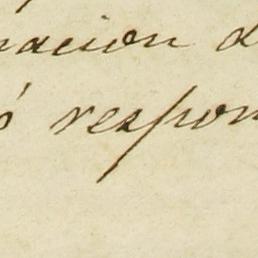 nacion d
ó respon